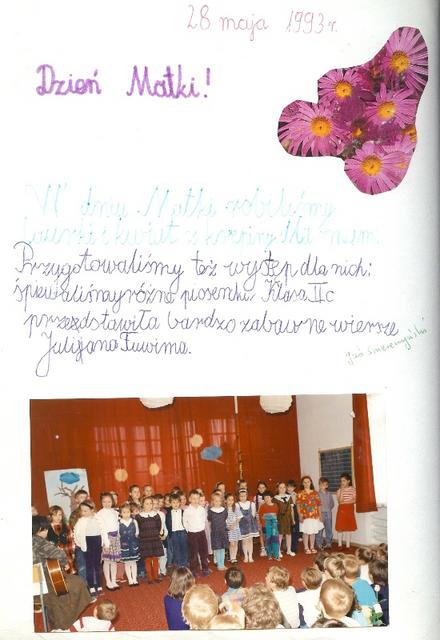 28 maja 1993 r.
Dzień Matki!
W dniu Matki robiliśmy
laurki i kwiat z krepiny dla mam.
Przygotowaliśmy też występ dla nich:
śpiewaliśmy różne piosenki. Klasa II c
przedstawiła bardzo zabawne wiersze
Julijana Tuwima.